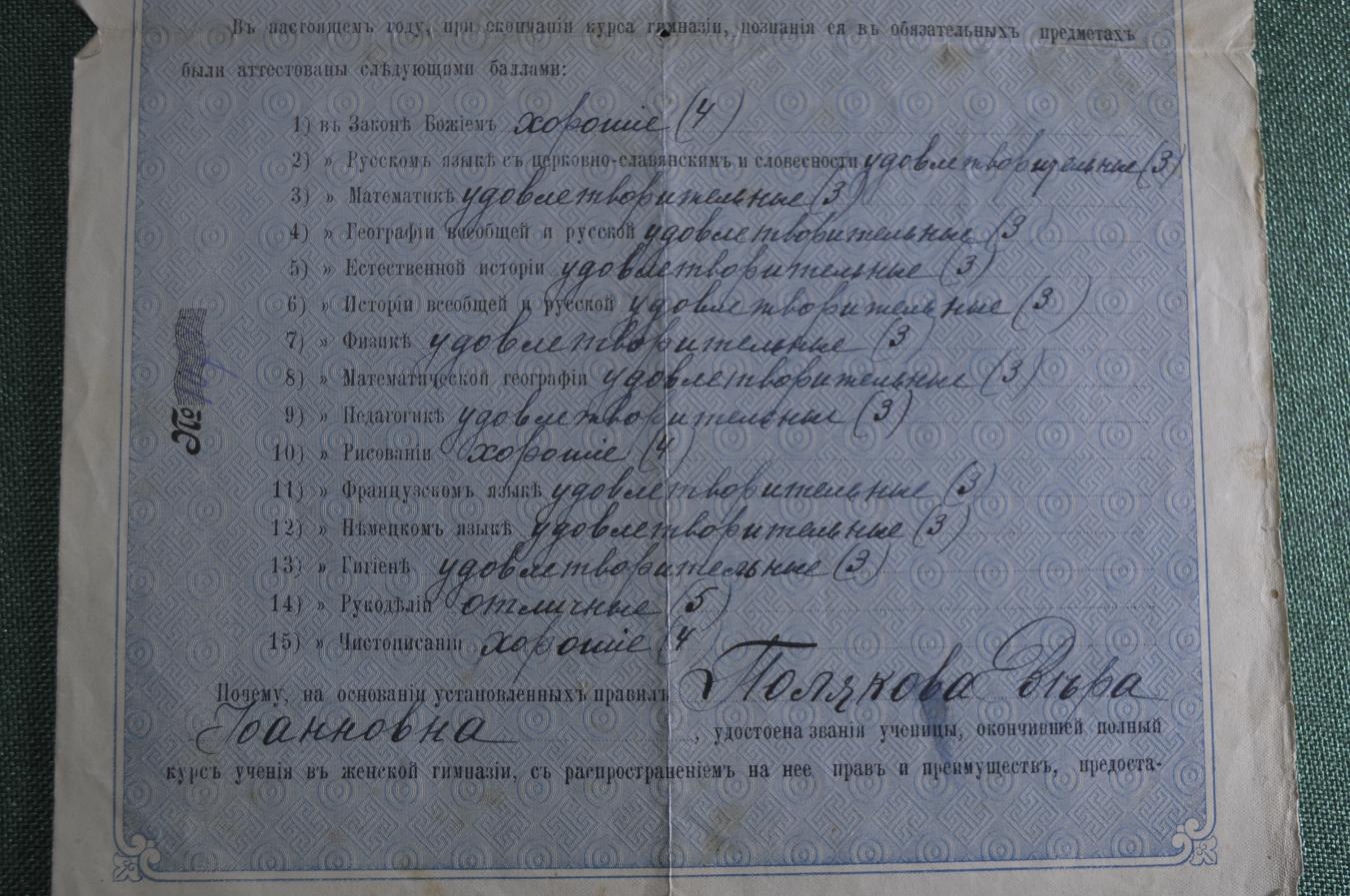 Въ настоящемъ году, при окончаніи курса гимназіи, познанія ея въ обязательныхъ предметахъ
были аттестованы слѣдующими баллами:
1) въ Законѣ Божіемъ хорошіе (4)
2) » Русскомъ языкѣ съ церковно-славянскимъ и словесности удовлетворительные (3)
3) » Математикѣ удовлетворительные (3)
4) » Географіи всеобщей и русской удовлетворительные (3
5) » Естественной исторіи удовлетворительные (3)
6) » Исторіи всеобщей и русской удовлетворительные (3)
7) » Физикѣ удовлетворительные (3)
8) » Математической географіи удовлетворительные (3)
9) » Педагогикѣ удовлетворительные (3)
10) » Рисованіи хорошіе (4)
11) » Французскомъ языкѣ удовлетворительные (3)
12) » Нѣмецкомъ языкѣ удовлетворительные (3)
13) » Гигіенѣ удовлетворительные (3)
14) » Рукодѣліи отличные (5)
15) » Чистописаніи хорошіе (4
Почему, на основаніи установленныхъ правилъ Полякова Вѣра
Іоанновна, удостоена званія ученицы, окончившей полный
курсъ ученія въ женской гимназіи, съ распространеніемъ на нее правъ и преимуществъ, предоста-
№